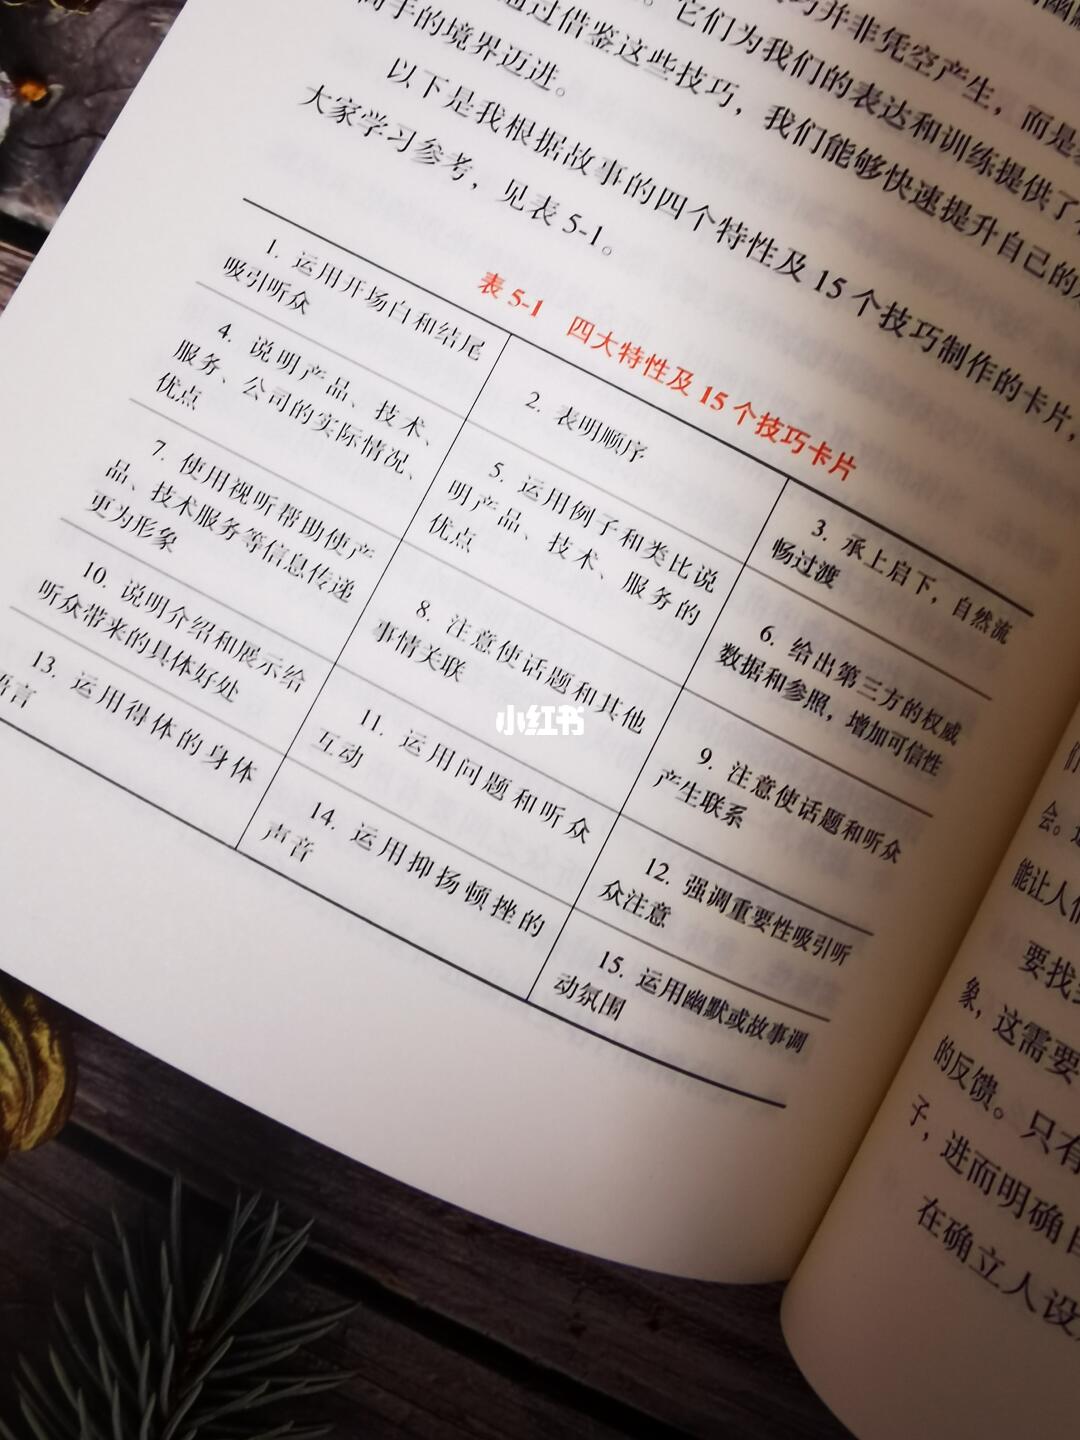 巧并非凭空产生，而是
。它们为我们的表达和训练提供了
通过借鉴这些技巧，我们能够快速提升自己的
高手的境界迈进。
以下是我根据故事的四个特性及15个技巧制作的卡片，
大家学习参考，见表5-1。
表5-1 四大特性及15个技巧卡片
1. 运用开场白和结尾
吸引听众
2. 表明顺序
3. 承上启下，自然流
畅过渡
4. 说明产品、技术、
服务、公司的实际情况、
优点
5. 运用例子和类比说
明产品、技术、服务的
优点
6. 给出第三方的权威
数据和参照，增加可信性
7. 使用视听帮助使产
品、技术服务等信息传递
更为形象
8. 注意使话题和其他
事情关联
9. 注意使话题和听众
产生联系
10. 说明介绍和展示给
听众带来的具体好处
11. 运用问题和听众
互动
12. 强调重要性吸引听
众注意
13. 运用得体的身体
语言
14. 运用抑扬顿挫的
声音
15. 运用幽默或故事调
动氛围
小红书
们
会。
能让人
要找
象，这需要
的反馈。只有
子，进而明确
在确立人设